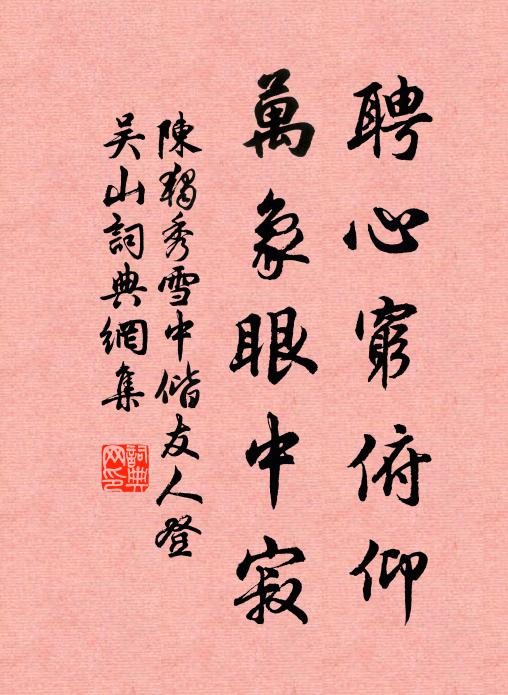 聘心窮俯仰
萬象眼中寂
陳獨秀雪中偕友人登
吴山詞典網集
詞典网印